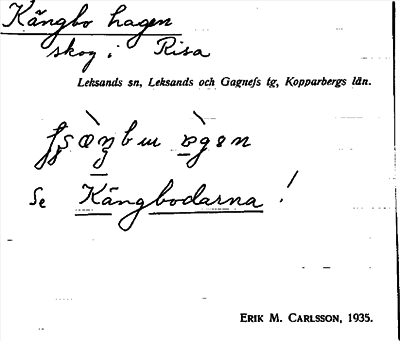 Kångbo hagen
skog i Risa
Leksands sn, Leksands och Gagnefs tg, Kopparbergs län.
Se Kångbodarna!
ERIK M. CARLSSON, 1935.